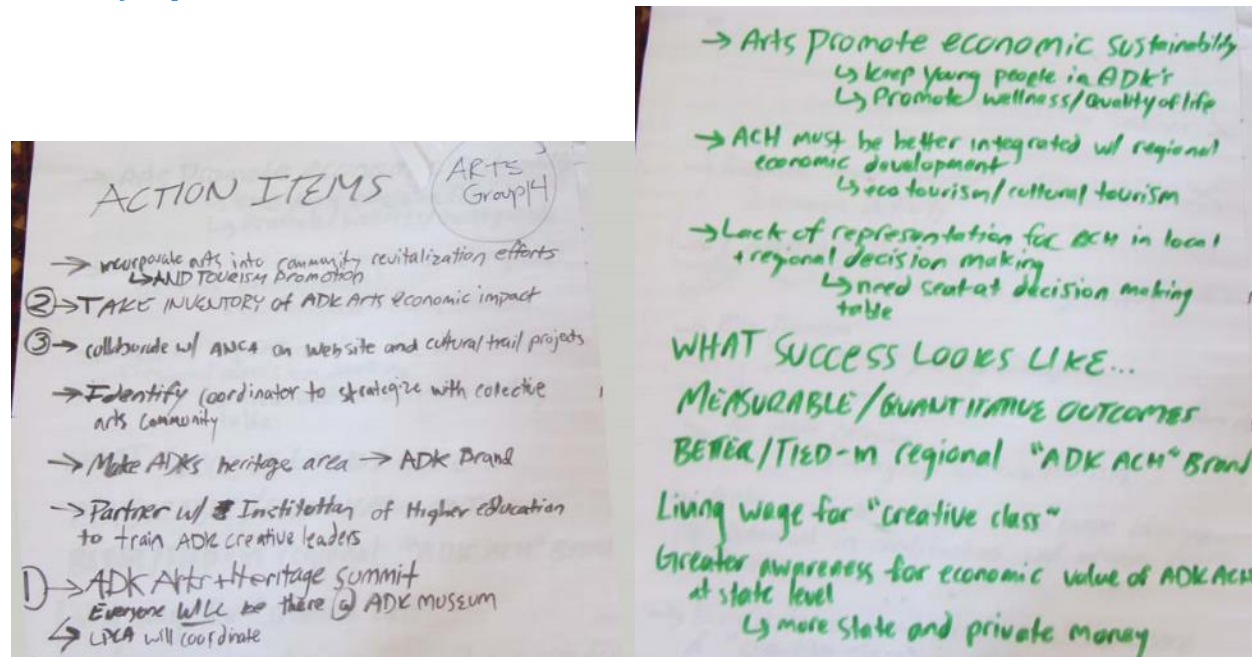 ACTION ITEMS
ARTS
Group 14
→ incorporate arts into community revitalization efforts
↳ AND TOURISM promotion
② → TAKE INVENTORY of ADK Arts economic impact
③ → collaborate w/ ANCA on website and cultural trail projects
→ Identify coordinator to strategize with colective
arts community
→ Make ADKs heritage area → ADK Brand
→ Partner w/ Institution of Higher education
to train ADK creative leaders
1) → ADK Arts + Heritage Summit
Everyone WILL be there @ ADK museum
↳ LPCA will coordinate
→ Arts promote economic sustainability
↳ keep young people in ADK's
↳ Promote wellness/Quality of life
→ ACH must be better integrated w/ regional
economic development
↳ eco tourism/cultural tourism
→ Lack of representation for ACH in local
+ regional decision making
↳ need seat at decision making
table
WHAT SUCCESS LOOKS LIKE...
MEASURABLE/QUANTITATIVE OUTCOMES
BETTER/TIED-in regional "ADK ACH" Brand
Living wage for "creative class"
Greater awareness for economic value of ADK ACH
at state level
↳ more state and private money